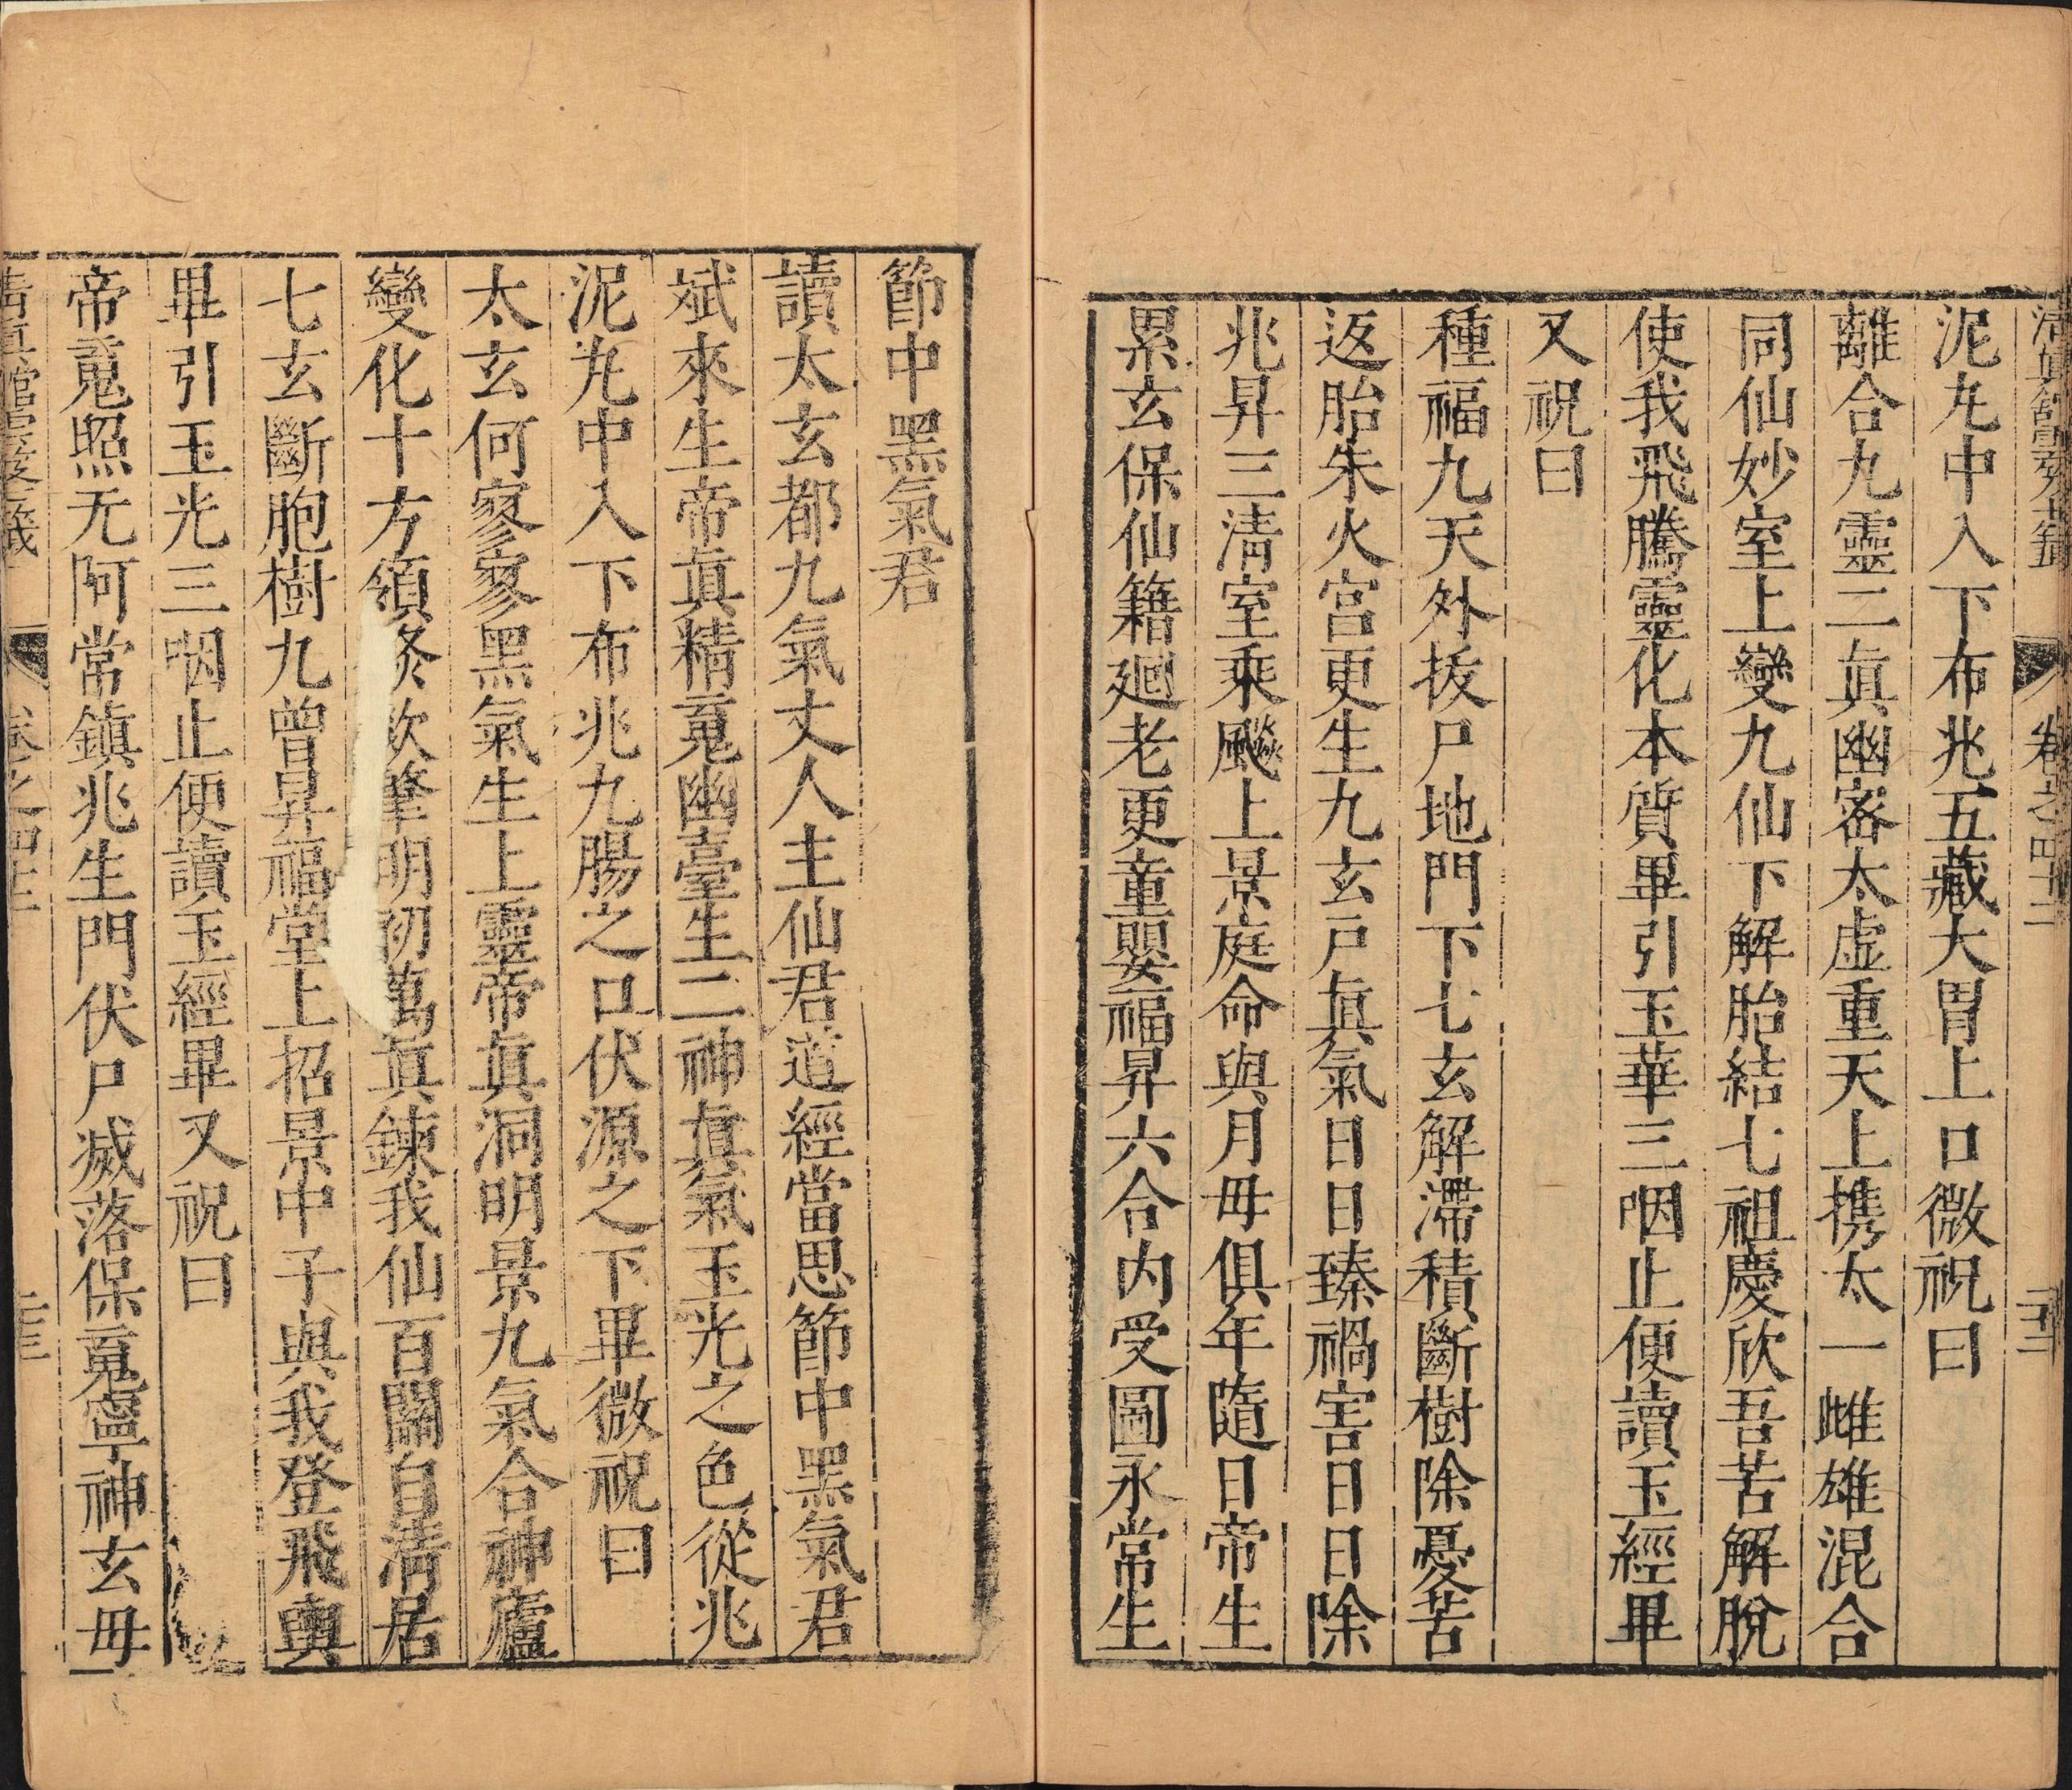 泥丸中入下布兆五藏大胃上口微祝曰
離合九靈二眞幽寄太虛重天上携太一雌雄混合
同仙妙室上變九仙下解胎結七祖慶欣吾苦解脫
使我飛騰靈化本質畢引玉華三咽止便讀玉經畢
又祝曰
種福九天外拔尸地門下七玄解滯積斷樹除憂苦
返胎朱火宮更生九玄戶眞氣日日臻禍害日日除
兆昇三清室乘飈上景庭命與月毋俱年隨日帝生
累玄保仙籍廻老更童嬰福昇六合內受圖永常生
節中黑氣君
讀太玄都九氣丈人主仙君道經當思節中黑氣君
斌來生帝眞精䰟幽臺生二神眞氣玉光之色從兆
泥丸中入下布兆九腸之口伏源之下畢微祝曰
太玄何寥寥黑氣生上靈帝眞洞明景九氣合神廬
變化十方領明初萬眞鍊我仙百關自清居
七玄斷胞樹九曾昇福堂上招景中子與我登飛輿
畢引玉光三咽止便讀玉經畢又祝曰
帝䰟照无阿常鎮兆生門伏尸滅落保䰟寧神玄毋